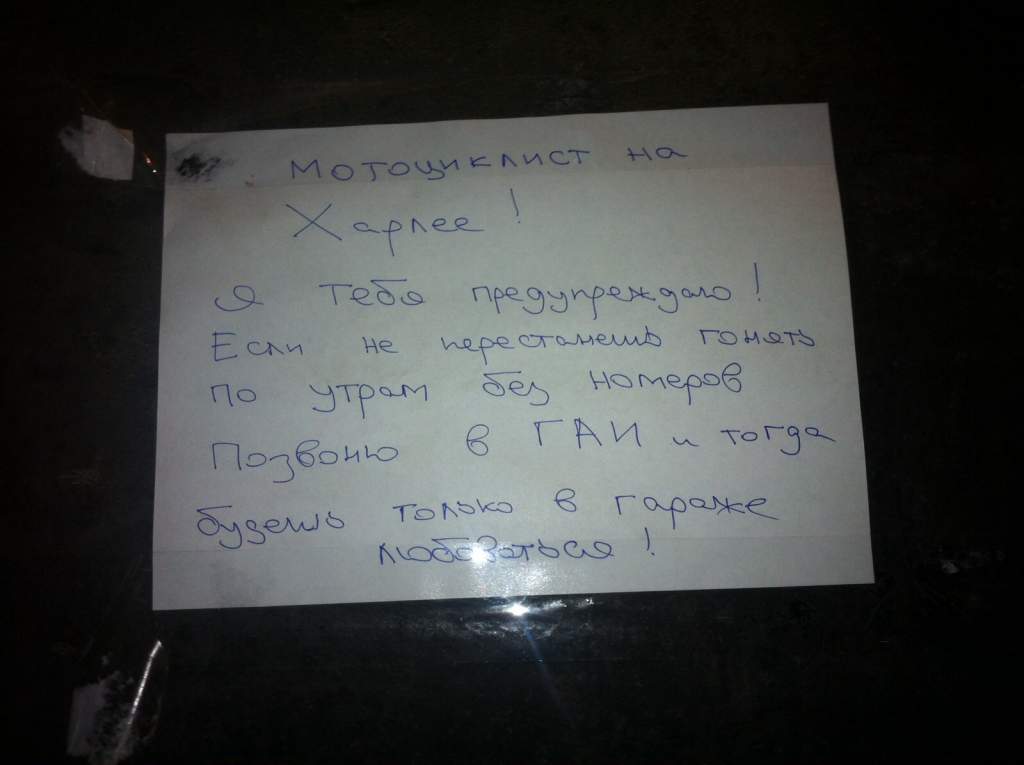 Мотоциклист на
Харлее!
Я тебя предупреждаю!
Если не перестанешь гонять
по утрам без номеров
Позвоню в ГАИ и тогда
будешь только в гараже
любоваться!